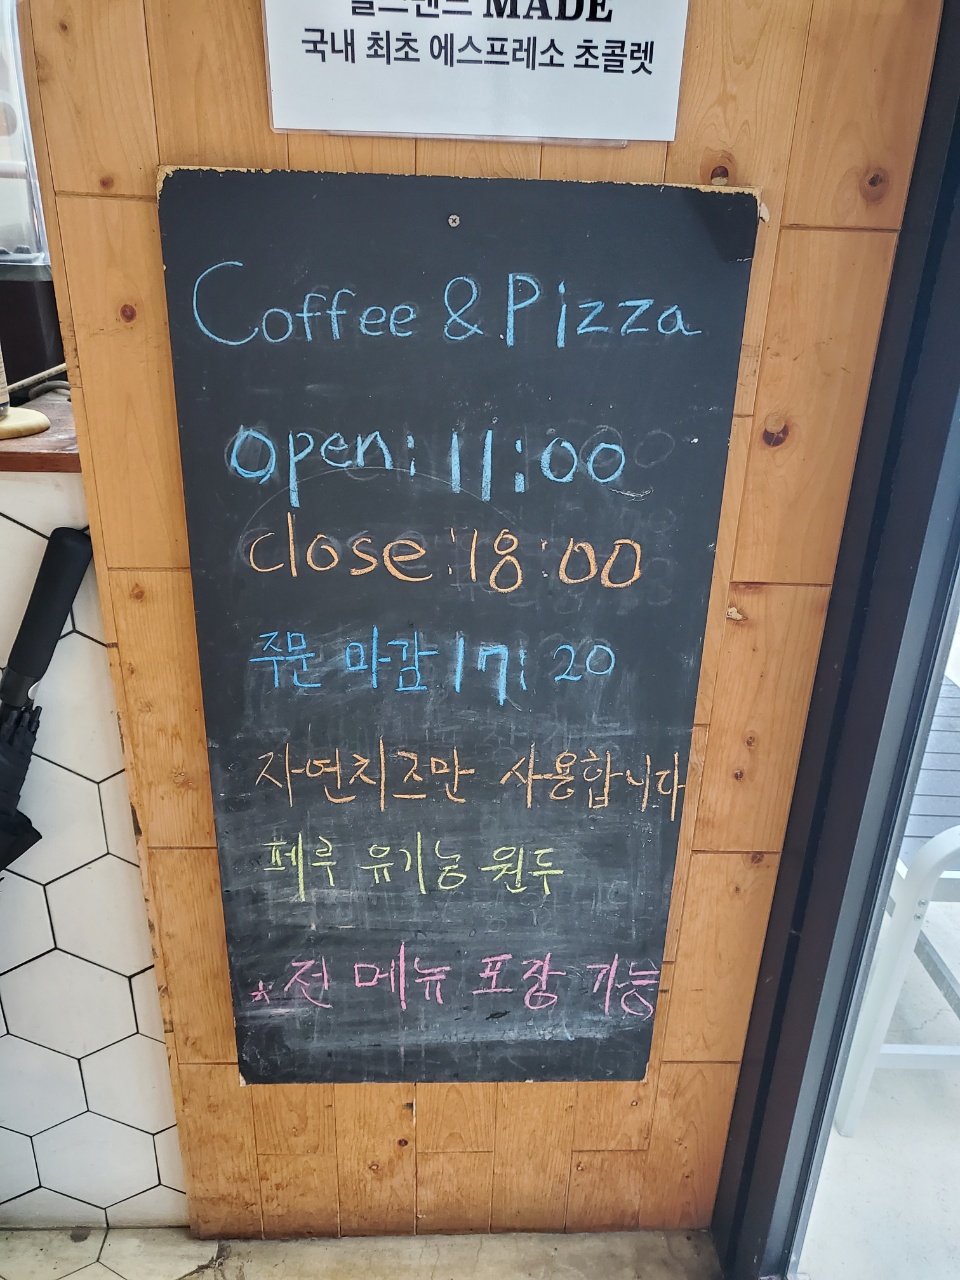 MADE
국내 최초 에스프레소 초콜렛
Coffee & Pizza
open: 11:00
close: 18:00
주문 마감 17: 20
자연치즈만 사용합니다
페루 유기농 원두
* 전 메뉴 포장 가능